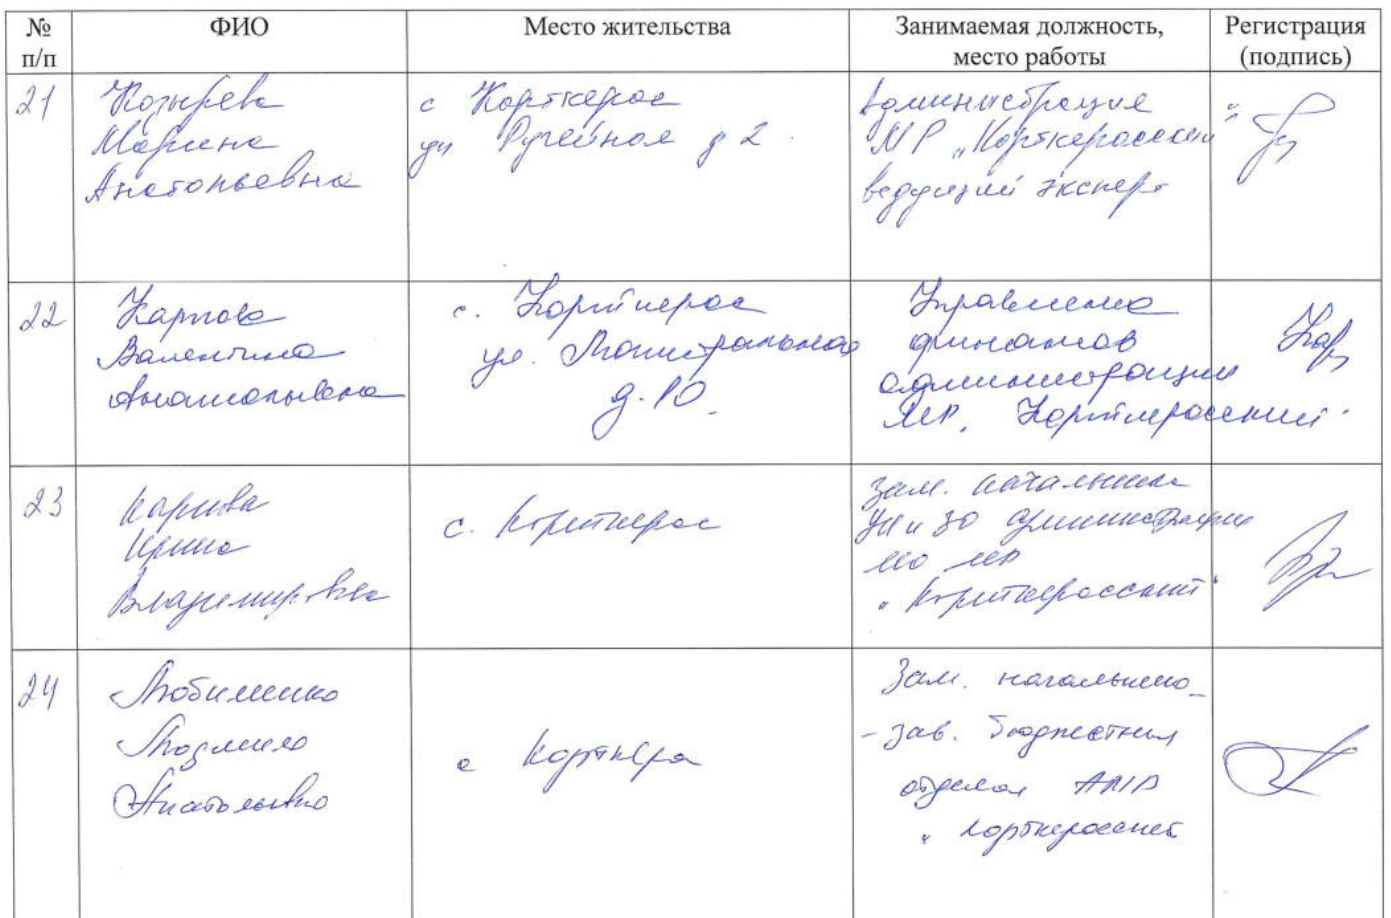 № п/п
ФИО
Место жительства
Занимаемая должность, место работы
Регистрация (подпись)
21
Козырева
Марина
Анатольевна
с Корткерос
ул Ручейная д 2.
Администрация
МР "Корткеросский"
ведущий эксперт
22
Карпова
Валентина
Анатольевна
с. Корткерос
ул. Магистральная
д. 10.
Управление
финансов
администрации
МР "Корткеросский"
Кар
23
Карпова
Ирина
Владимировна
с. Корткерос
зам. начальника
администрации
МО МР
"Корткеросский"
24
Любименко
Людмила
Анатольевна
с Корткерос
Зам. начальника-
- зав. бюджетным
отделом АМР
"Корткеросский